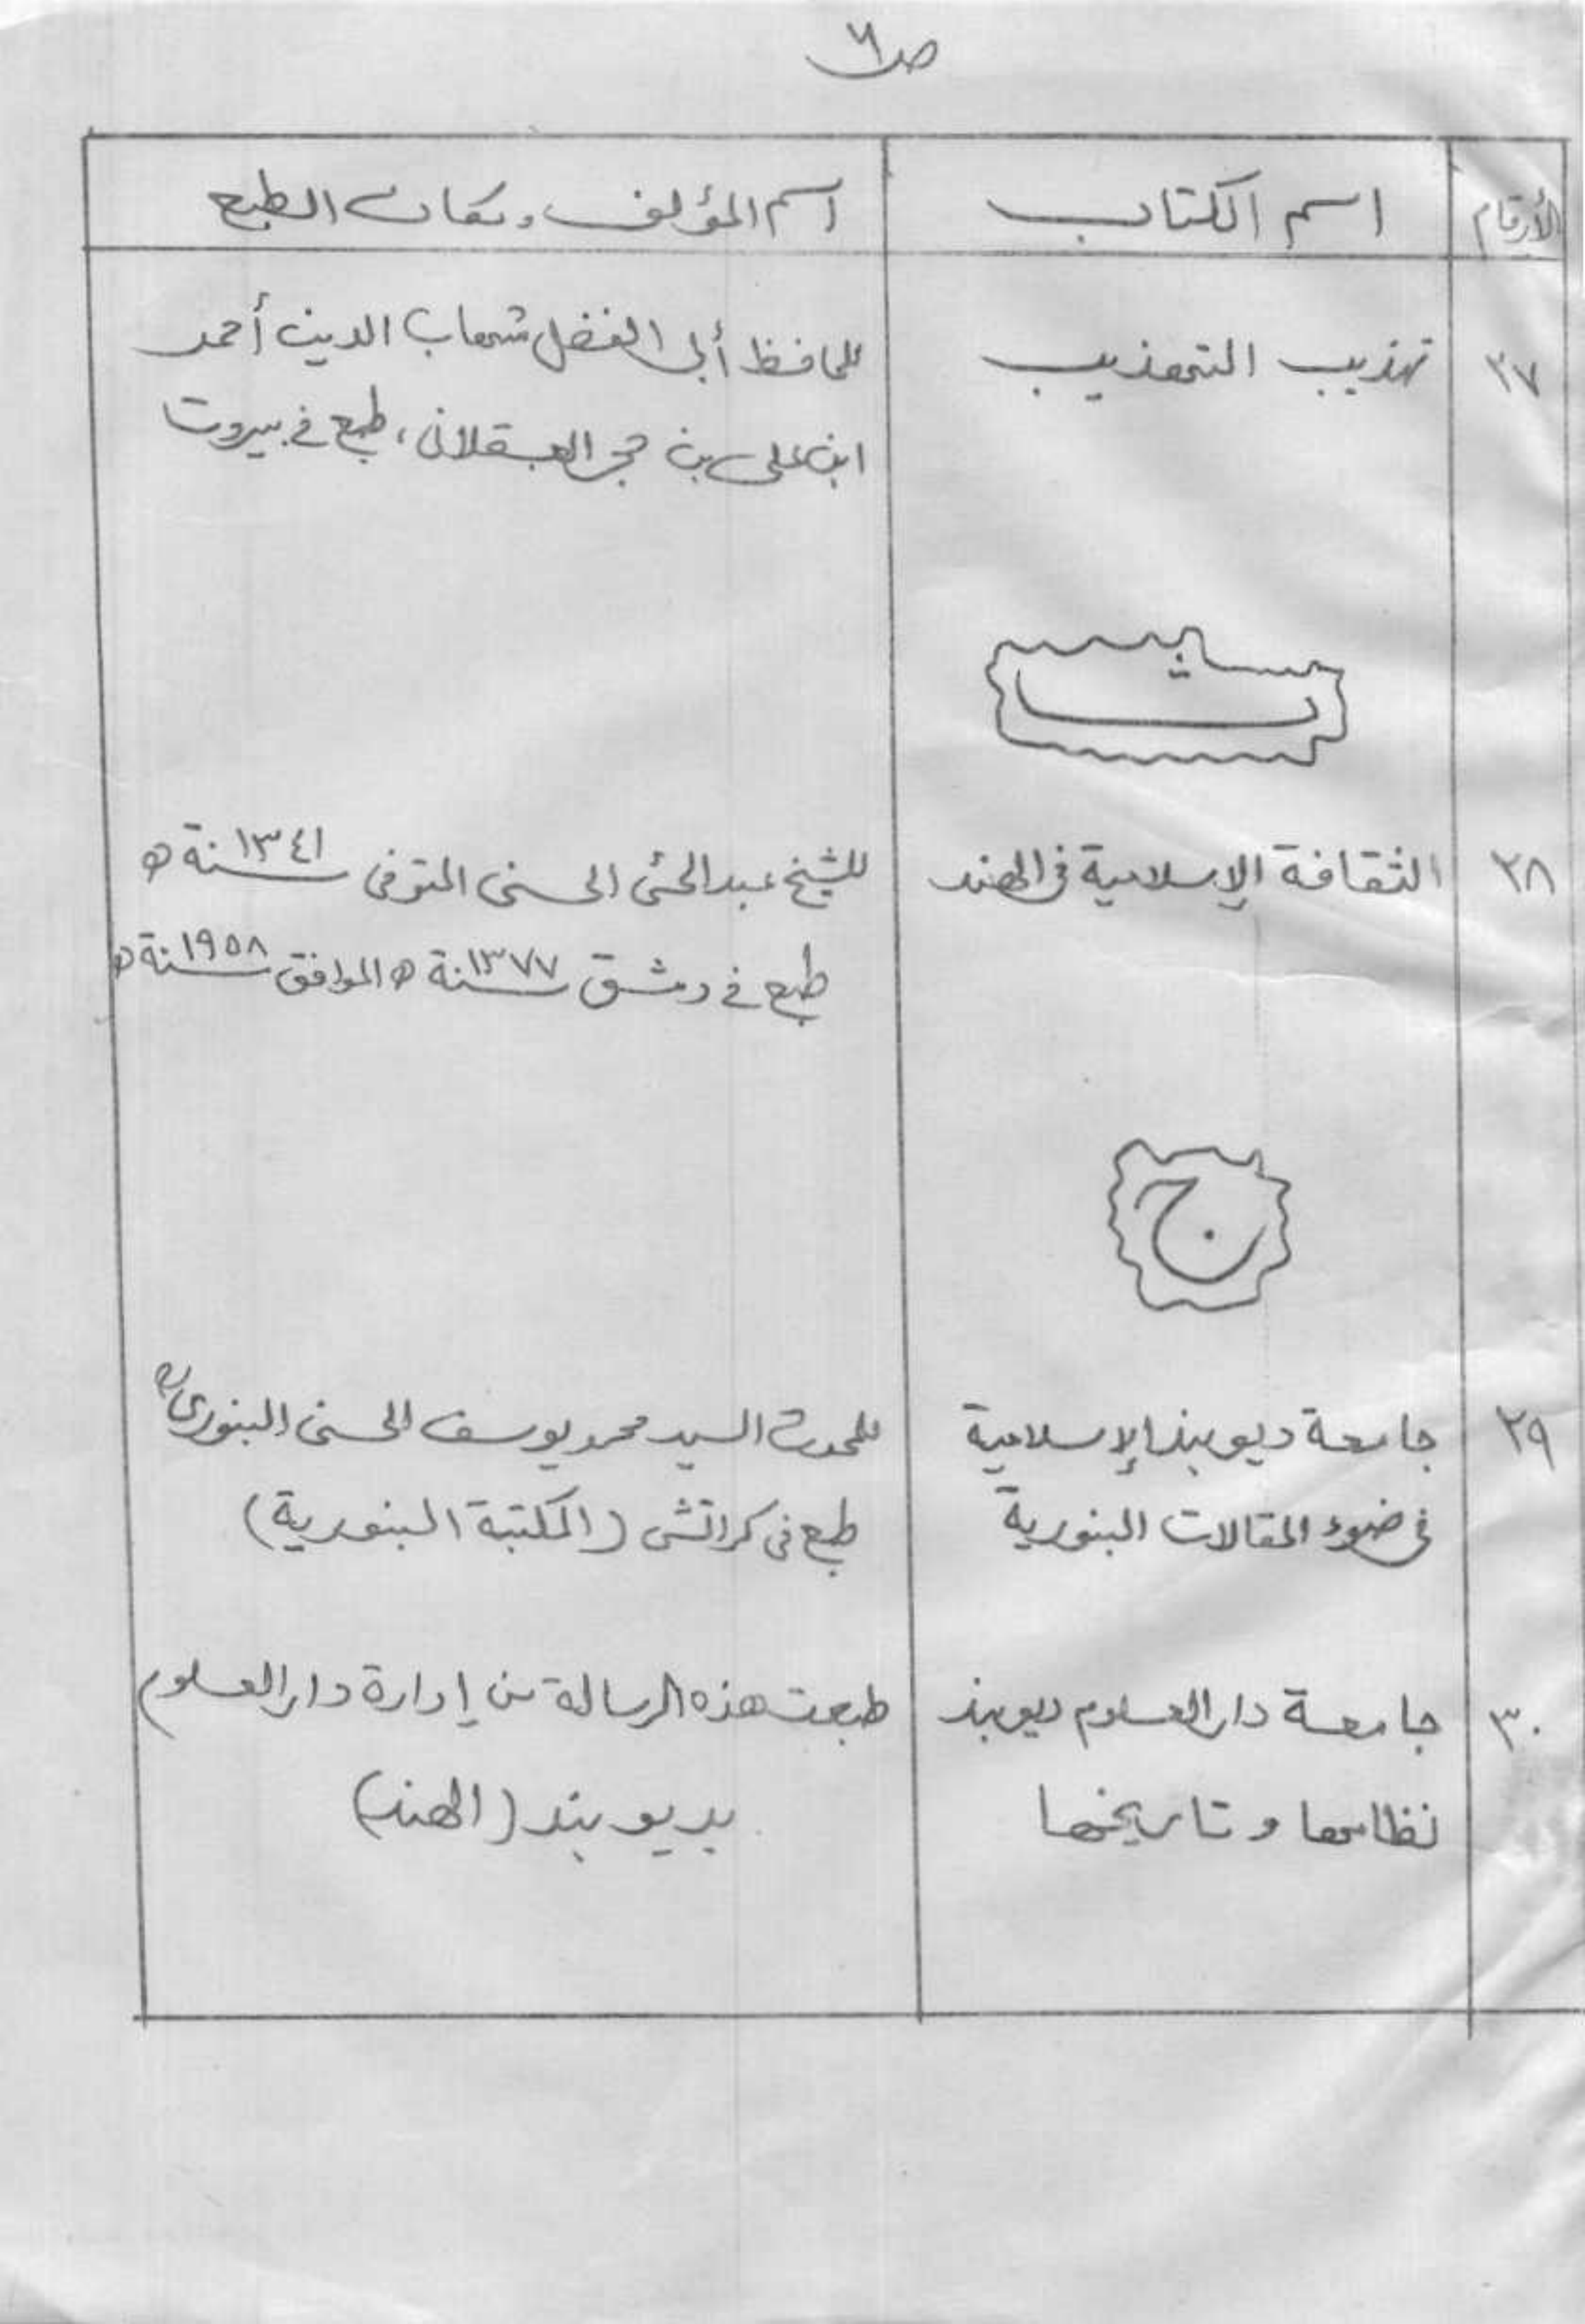 ص٦
الأرقام اسم الكتاب اسم المؤلف ومكان الطبع
٢٧ تهذيب التهذيب للحافظ أبي الفضل شهاب الدين أحمد
ابن علي بن حجر العسقلاني، طبع في بيروت
ث
٢٨ الثقافة الإسلامية في الهند للشيخ عبد الحئ الحسني المتوفى سنة ١٣٤١ ه
طبع في دمشق سنة ١٣٧٧ ه الموافق سنة ١٩٥٨ ه
ج
٢٩ جامعة ديوبند الإسلامية للمحدث السيد محمد يوسف الحسني البنوري
في ضوء المقالات البنورية طبع في كراتشي (المكتبة البنورية)
٣٠ جامعة دار العلوم ديوبند طبعت هذه الرسالة من إدارة دار العلوم
نظامها وتاريخها بديوبند (الهند)